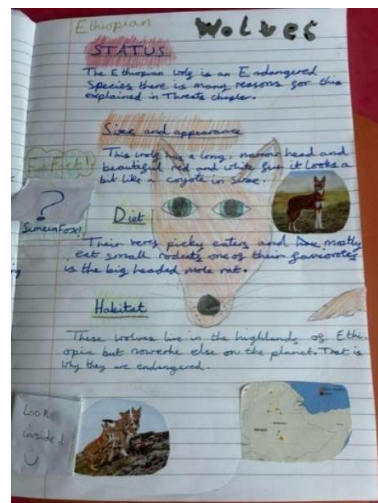 Ethiopian Wolves
STATUS
The Ethiopian wolf is an Endangered
Species there is many reasons for this
explained in Threats chapter.
Size and appearance
This wolf has a long, narrow head and
beautiful red and white fur it looks a
bit like a coyote in size.
Fun Fact!
?
Simein Fox!
Diet
Their very picky eaters and mostly
eat small rodents one of their favourotes
is the big headed mole rat.
Habitat
These wolves live in the highlands of Ethi-
opia but nowerhe else on the planet. That is
why they are endangered.
Look
inside